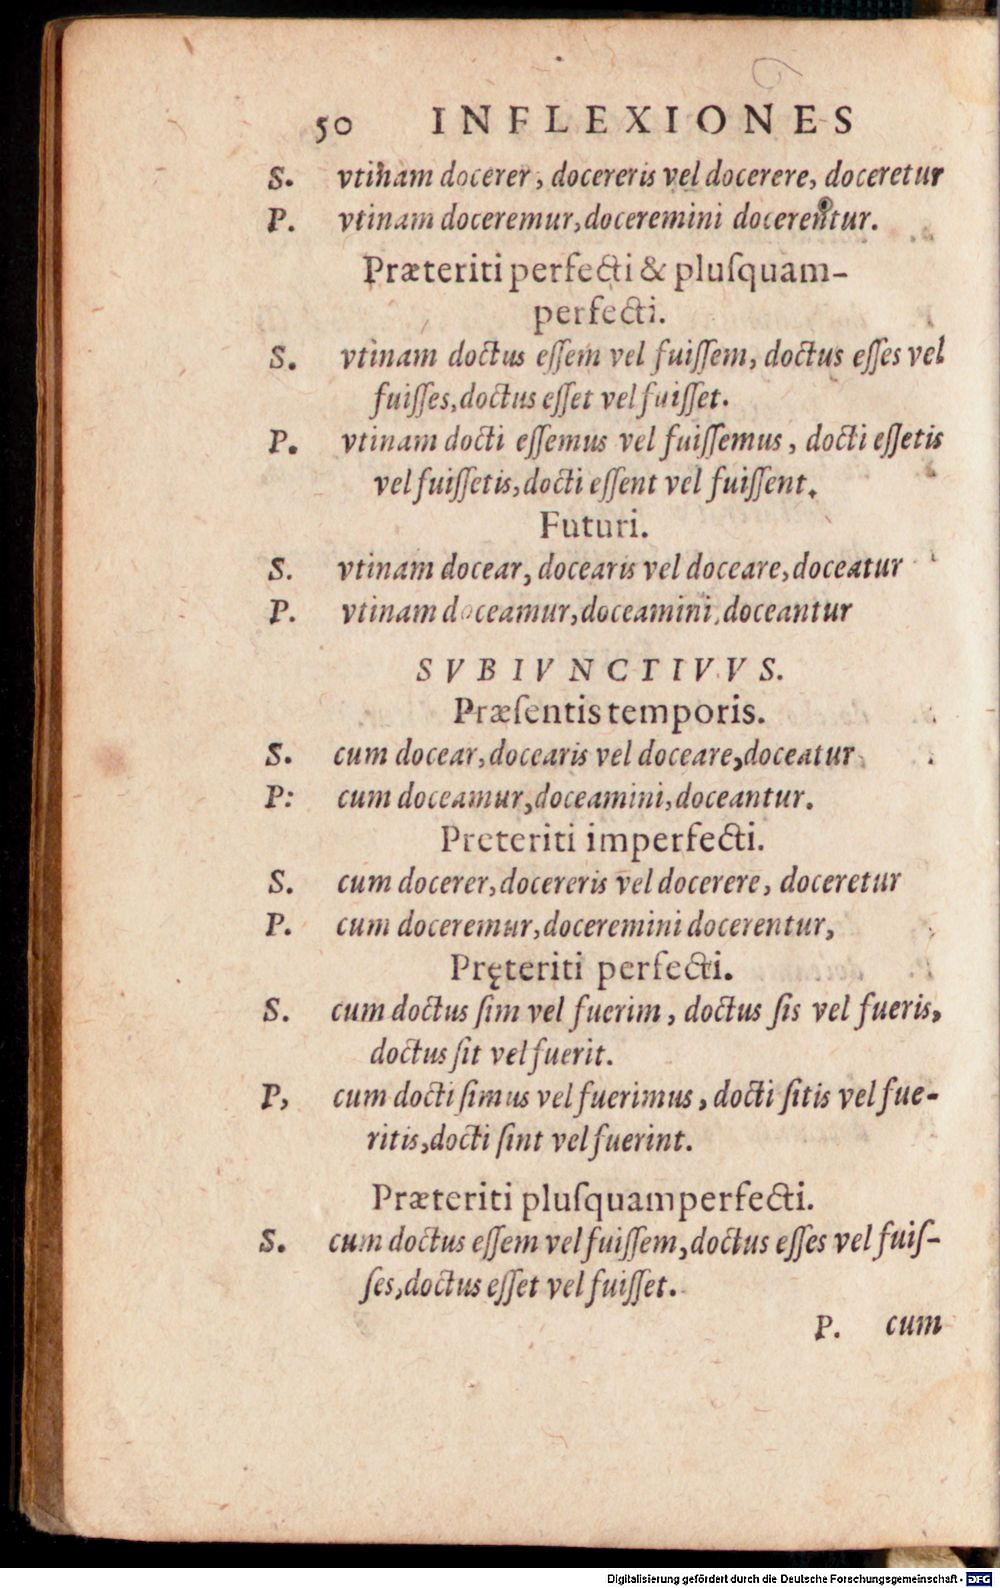 50 INFLEXIONES
S. vtinam docerer, docereris vel docerere, doceretur
P. vtinam doceremur,doceremini docerentur.
Præteriti perfecti & pluſquam-
perfecti.
S. vtinam doctus eſſem vel fuiſſem, doctus eſſes vel
fuiſſes,doctus eſſet vel fuiſſet.
P. vtinam docti eſſemus vel fuiſſemus, docti eſſetis
vel fuiſſetis,docti eſſent vel fuiſſent.
Futuri.
S. vtinam docear, docearis vel doceare,doceatur
P. vtinam doceamur,doceamini,doceantur
SVBIVNCTIVVS.
Præſentis temporis.
S. cum docear,docearis vel doceare,doceatur
P: cum doceamur,doceamini,doceantur.
Preteriti imperfecti.
S. cum docerer,docereris vel docerere, doceretur
P. cum doceremur,doceremini docerentur,
Pręteriti perfecti.
S. cum doctus ſim vel fuerim, doctus ſis vel fueris,
doctus ſit vel fuerit.
P, cum docti ſimus vel fuerimus, docti ſitis vel fue-
ritis,docti ſint vel fuerint.
Præteriti pluſquamperfecti.
S. cum doctus eſſem vel fuiſſem,doctus eſſes vel fuiſ-
ſes,doctus eſſet vel fuiſſet.
P. cum
Digitalisierung gefördert durch die Deutsche Forschungsgemeinschaft - DFG